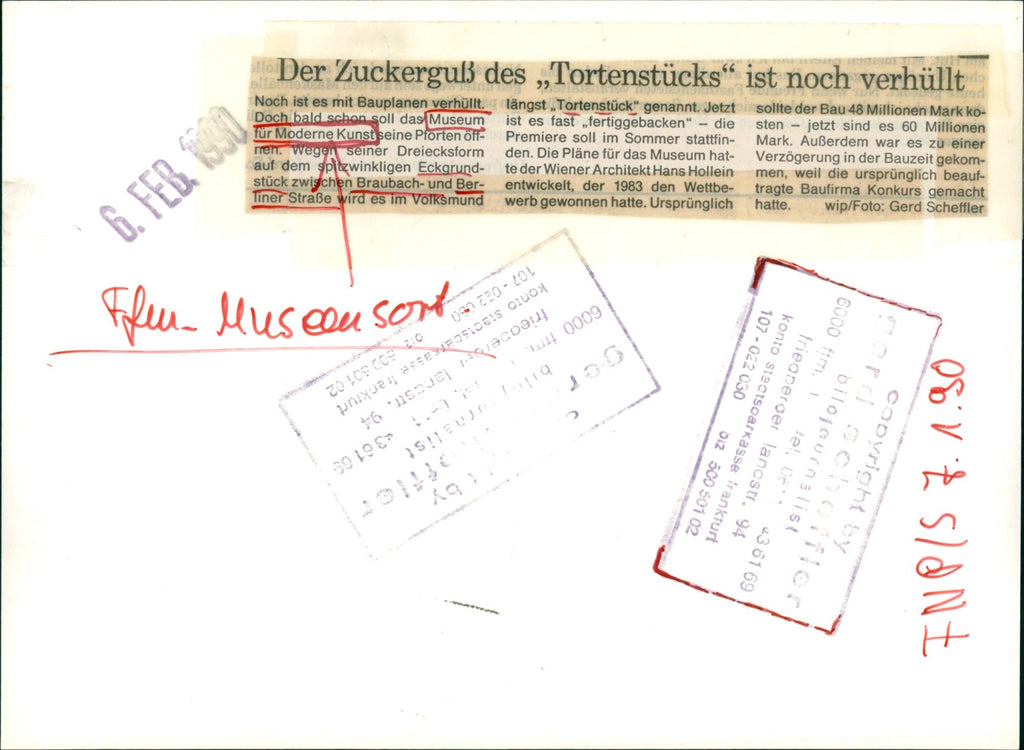 Der Zuckerguß des „Tortenstücks“ ist noch verhüllt
Noch ist es mit Bauplanen verhüllt.
Doch bald schon soll das Museum
für Moderne Kunst seine Pforten öff-
nen. Wegen seiner Dreiecksform
auf dem spitzwinkligen Eckgrund-
stück zwischen Braubach- und Ber-
liner Straße wird es im Volksmund
längst „Tortenstück“ genannt. Jetzt
ist es fast „fertiggebacken“ – die
Premiere soll im Sommer stattfin-
den. Die Pläne für das Museum hat-
te der Wiener Architekt Hans Hollein
entwickelt, der 1983 den Wettbe-
werb gewonnen hatte. Ursprünglich
sollte der Bau 48 Millionen Mark ko-
sten – jetzt sind es 60 Millionen
Mark. Außerdem war es zu einer
Verzögerung in der Bauzeit gekom-
men, weil die ursprünglich beauf-
tragte Baufirma Konkurs gemacht
hatte. wip/Foto: Gerd Scheffler
6. FEB. 1990
Ffm-Museumsort
copyright by
gerd scheffler
bildjournalist
6000 ffm. 1 tel. 4361 69
friedberger landstr. 94
konto stadtsparkasse frankfurt
107 - 022 030 blz 500 501 02
by
scheffler
bildjournalist
6000 ffm. 1 tel. 4361 69
friedberger landstr. 94
konto stadtsparkasse frankfurt
107 - 022 030 blz 500 501 02